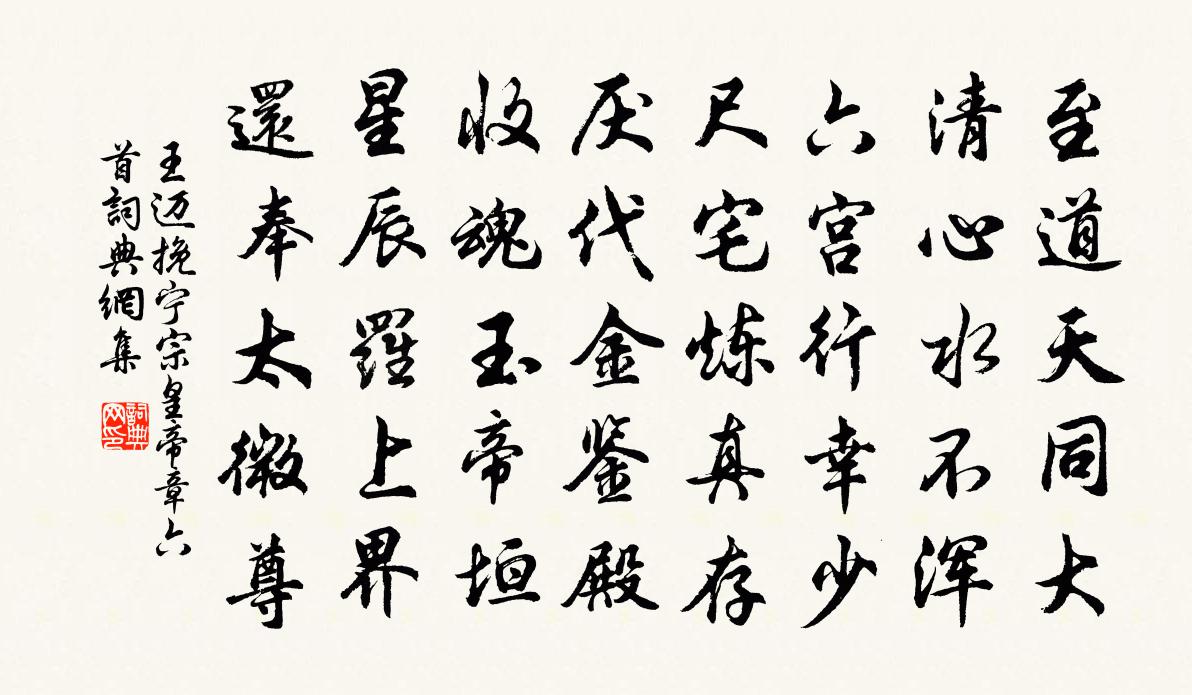 至道天同大
清心水不浑
六宫行幸少
尺宅炼真存
厌代金鉴殿
收魂玉帝垣
星辰羅上界
還奉太微尊
王迈挽宁宗皇帝章六
首詞典網集
詞典
网印